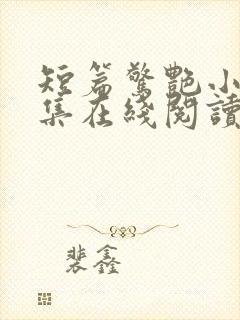 短篇驚艷小
集在綫閱讀
裴鑫